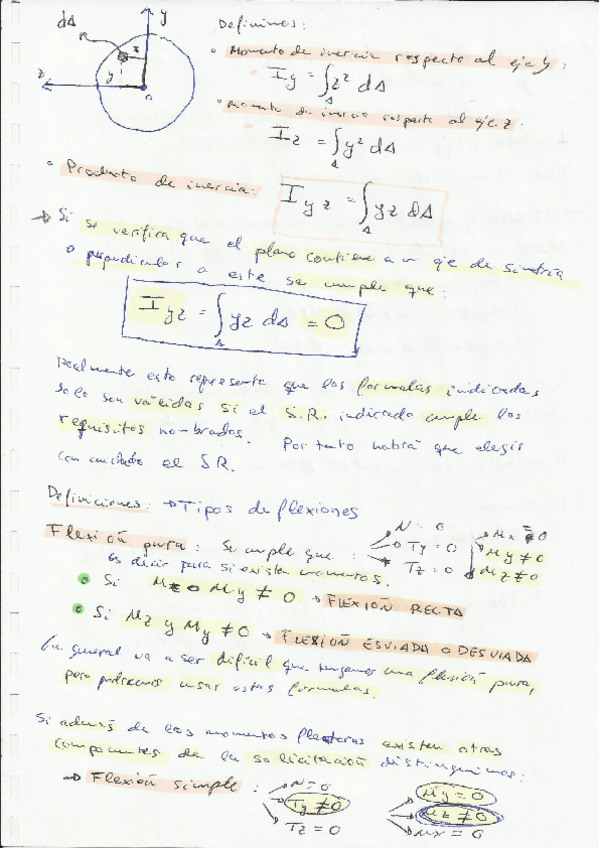 dA
y
z
z
y
o
Definimos:
• Momento de inercia respecto al eje y:
Iy = ∫A z² dA
• Momento de inercia respecto al eje z.
Iz = ∫A y² dA
• Producto de inercia:
Iyz = ∫A yz dA
→ Si se verifica que el plano contiene a un eje de simetria
o perpendicular a este se cumple que:
Iyz = ∫A yz dA = 0
Realmente esto representa que las formulas indicadas
solo son válidas si el S.R. indicado cumple los
requisitos nombrados. Por tanto habrá que elegir
con cuidado el SR.
Definiciones: → Tipos de flexiones
Flexión pura: Se cumple que:
N = 0
Ty = 0
Tz = 0
Mx = 0
My ≠ 0
Mz ≠ 0
Es decir para si existen momentos.
• Si Mz o My ≠ 0 → FLEXIÓN RECTA
• Si Mz y My ≠ 0 → FLEXIÓN ESVIADA O DESVIADA
En general va a ser difícil que tengamos una flexión pura,
pero podremos usar estas formulas.
Si además de los momentos flectores existen otras
componentes de la solicitación distinguimos:
→ Flexión simple:
N = 0
Ty ≠ 0
Tz = 0
My = 0
Mz ≠ 0
Mx = 0